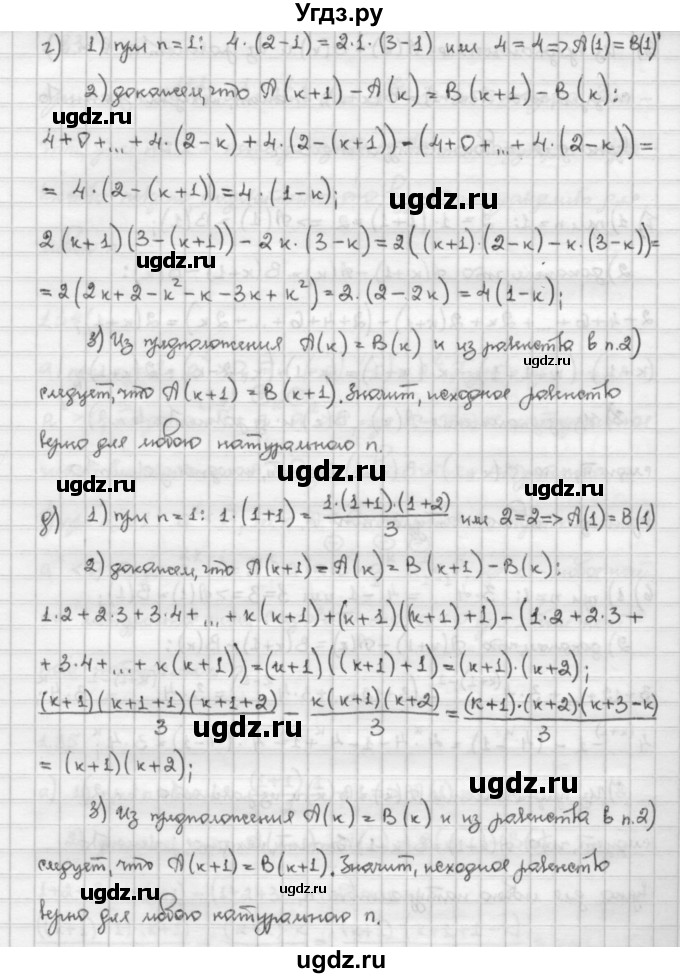 Угдз.ру
г) 1) при n=1: 4·(2-1)=2·1·(3-1) или 4=4=>A(1)=B(1)
2) докажем, что A(к+1)-A(к)=B(к+1)-B(к):
ugdz.ru
ugdz.ru
4+0+...+4·(2-к)+4·(2-(к+1))-(4+0+...+4·(2-к))=
=4·(2-(к+1))=4·(1-к);
ugdz.ru
2(к+1)(3-(к+1))-2к·(3-к)=2((к+1)·(2-к)-к·(3-к))=
ugdz.ru
=2(2к+2-к²-к-3к+к²)=2·(2-2к)=4(1-к);
3) Из предположения A(к)=B(к) и из равенства в п.2)
ugdz.ru
следует, что A(к+1)=B(к+1). Значит, исходное равенство
верно для любого натурального n.
ugdz.ru
ugdz.ru
ugdz.ru
д) 1) при n=1: 1·(1+1)=1·(1+1)·(1+2)/3 или 2=2=>A(1)=B(1)
2) докажем, что A(к+1)=A(к)=B(к+1)-B(к):
1·2+2·3+3·4+...+к(к+1)+(к+1)((к+1)+1)-(1·2+2·3+
+3·4+...+к(к+1))=(к+1)((к+1)+1)=(к+1)·(к+2);
(к+1)(к+1+1)(к+1+2)/3-к(к+1)(к+2)/3=(к+1)·(к+2)·(к+3-к)/3
ugdz.ru
=(к+1)(к+2);
ugdz.ru
3) Из предположения A(к)=B(к) и из равенства в п.2)
следует, что A(к+1)=B(к+1). Значит, исходное равенство
ugdz.ru
ugdz.ru
верно для любого натурального n.
ugdz.ru
ugdz.ru